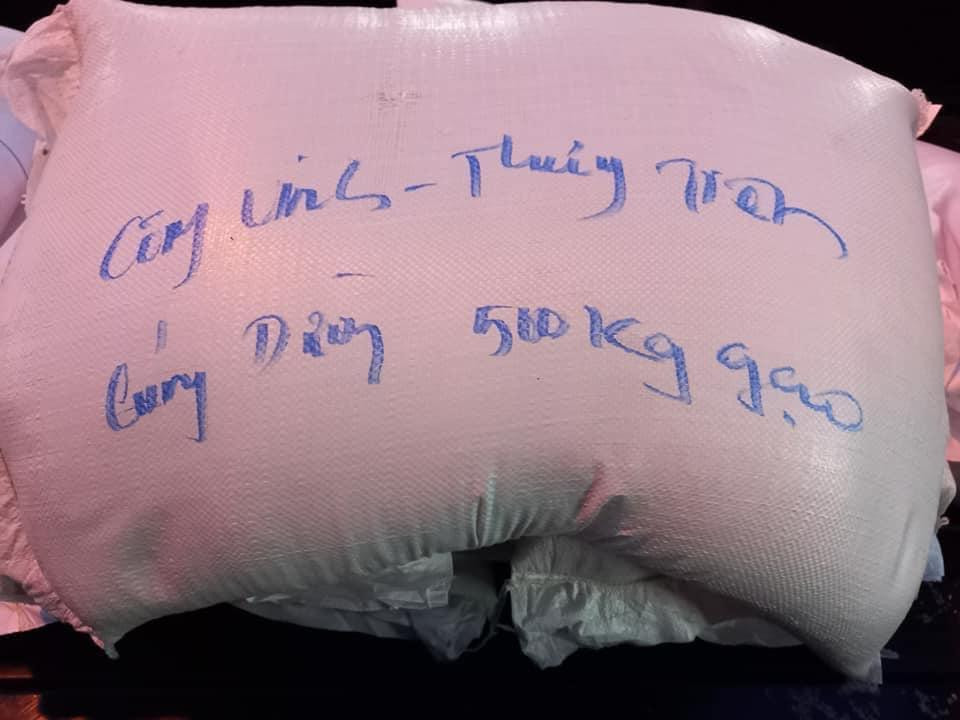 Công Vinh - Thuỷ Tiên
Cúng Dường 500 Kg gạo